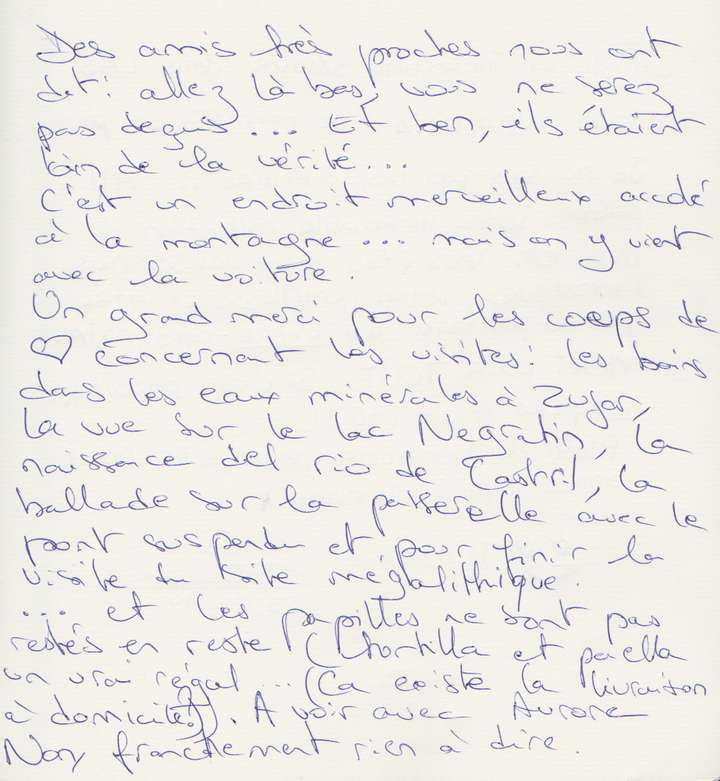 Des amis très proches nous ont
dit: allez là bas, vous ne serez
pas deçus... Et ben, ils étaient
loin de la vérité...
C'est un endroit merveilleux accolé
à la montagne ... mais on y vient
avec la voiture.
Un grand merci pour les coups de
♡ concernant les visites: les bains
dans les eaux minérales à Zujar,
la vue sur le lac Negratin, la
naissance del rio de Castril, la
ballade sur la passerelle avec le
pont suspendu et pour finir la
visite du site mégalithique.
... et les papilles ne sont pas
restés en reste (thortilla et paella
un vrai régal ... (Ca existe la livraison
à domicile?)). A voir avec Aurore
Non franchement rien à dire.